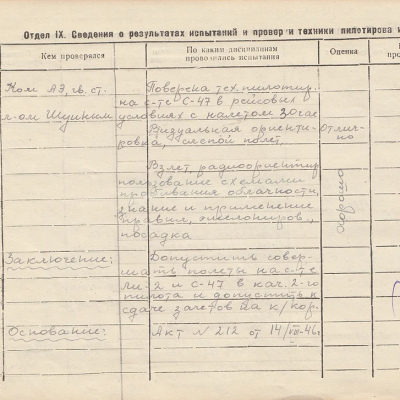 Отдел IX. Сведения о результатах испытаний и проверки техники пилотирова
Кем проверялся
По каким дисциплинам
проводились испытания
Оценка
Ком АЭ, гв. ст.
л-ом Шукиным
Поверена тех. пилотир.
на с-те С-47 в рейсовых
условиях с налетом 30 час
Визуальная ориенти-
ровка, слепой полет,
Отлич-
но
Взлет, радиоориентир
пользование схемами
пробивания облачности,
знание и применение
правил, эшелониров.,
посадка
хорошо
Заключение:
Допустить совер-
шать полеты на с-те
Ли-2 и С-47 в кач. 2-го
пилота и допустить к
сдаче зачетов на к/кор.
Основание:
Акт N 212 от 14/VIII-46г.